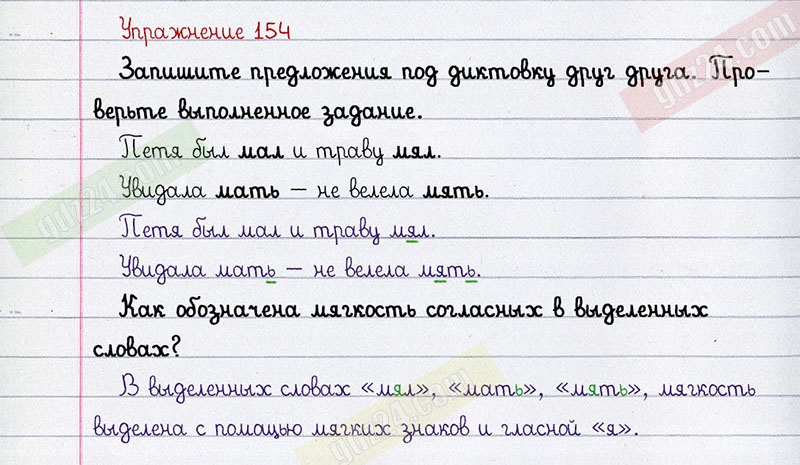 Упражнение 154
Запишите предложения под диктовку друг друга. Про-
верьте выполненное задание.
Петя был мал и траву мял.
Увидала мать – не велела мять.
Петя был мал и траву мял.
Увидала мать – не велела мять.
Как обозначена мягкость согласных в выделенных
словах?
В выделенных словах «мял», «мать», «мять», мягкость
выделена с помацью мягких знаков и гласной «я».
gdz24.com
gdz24.com
gdz24.com